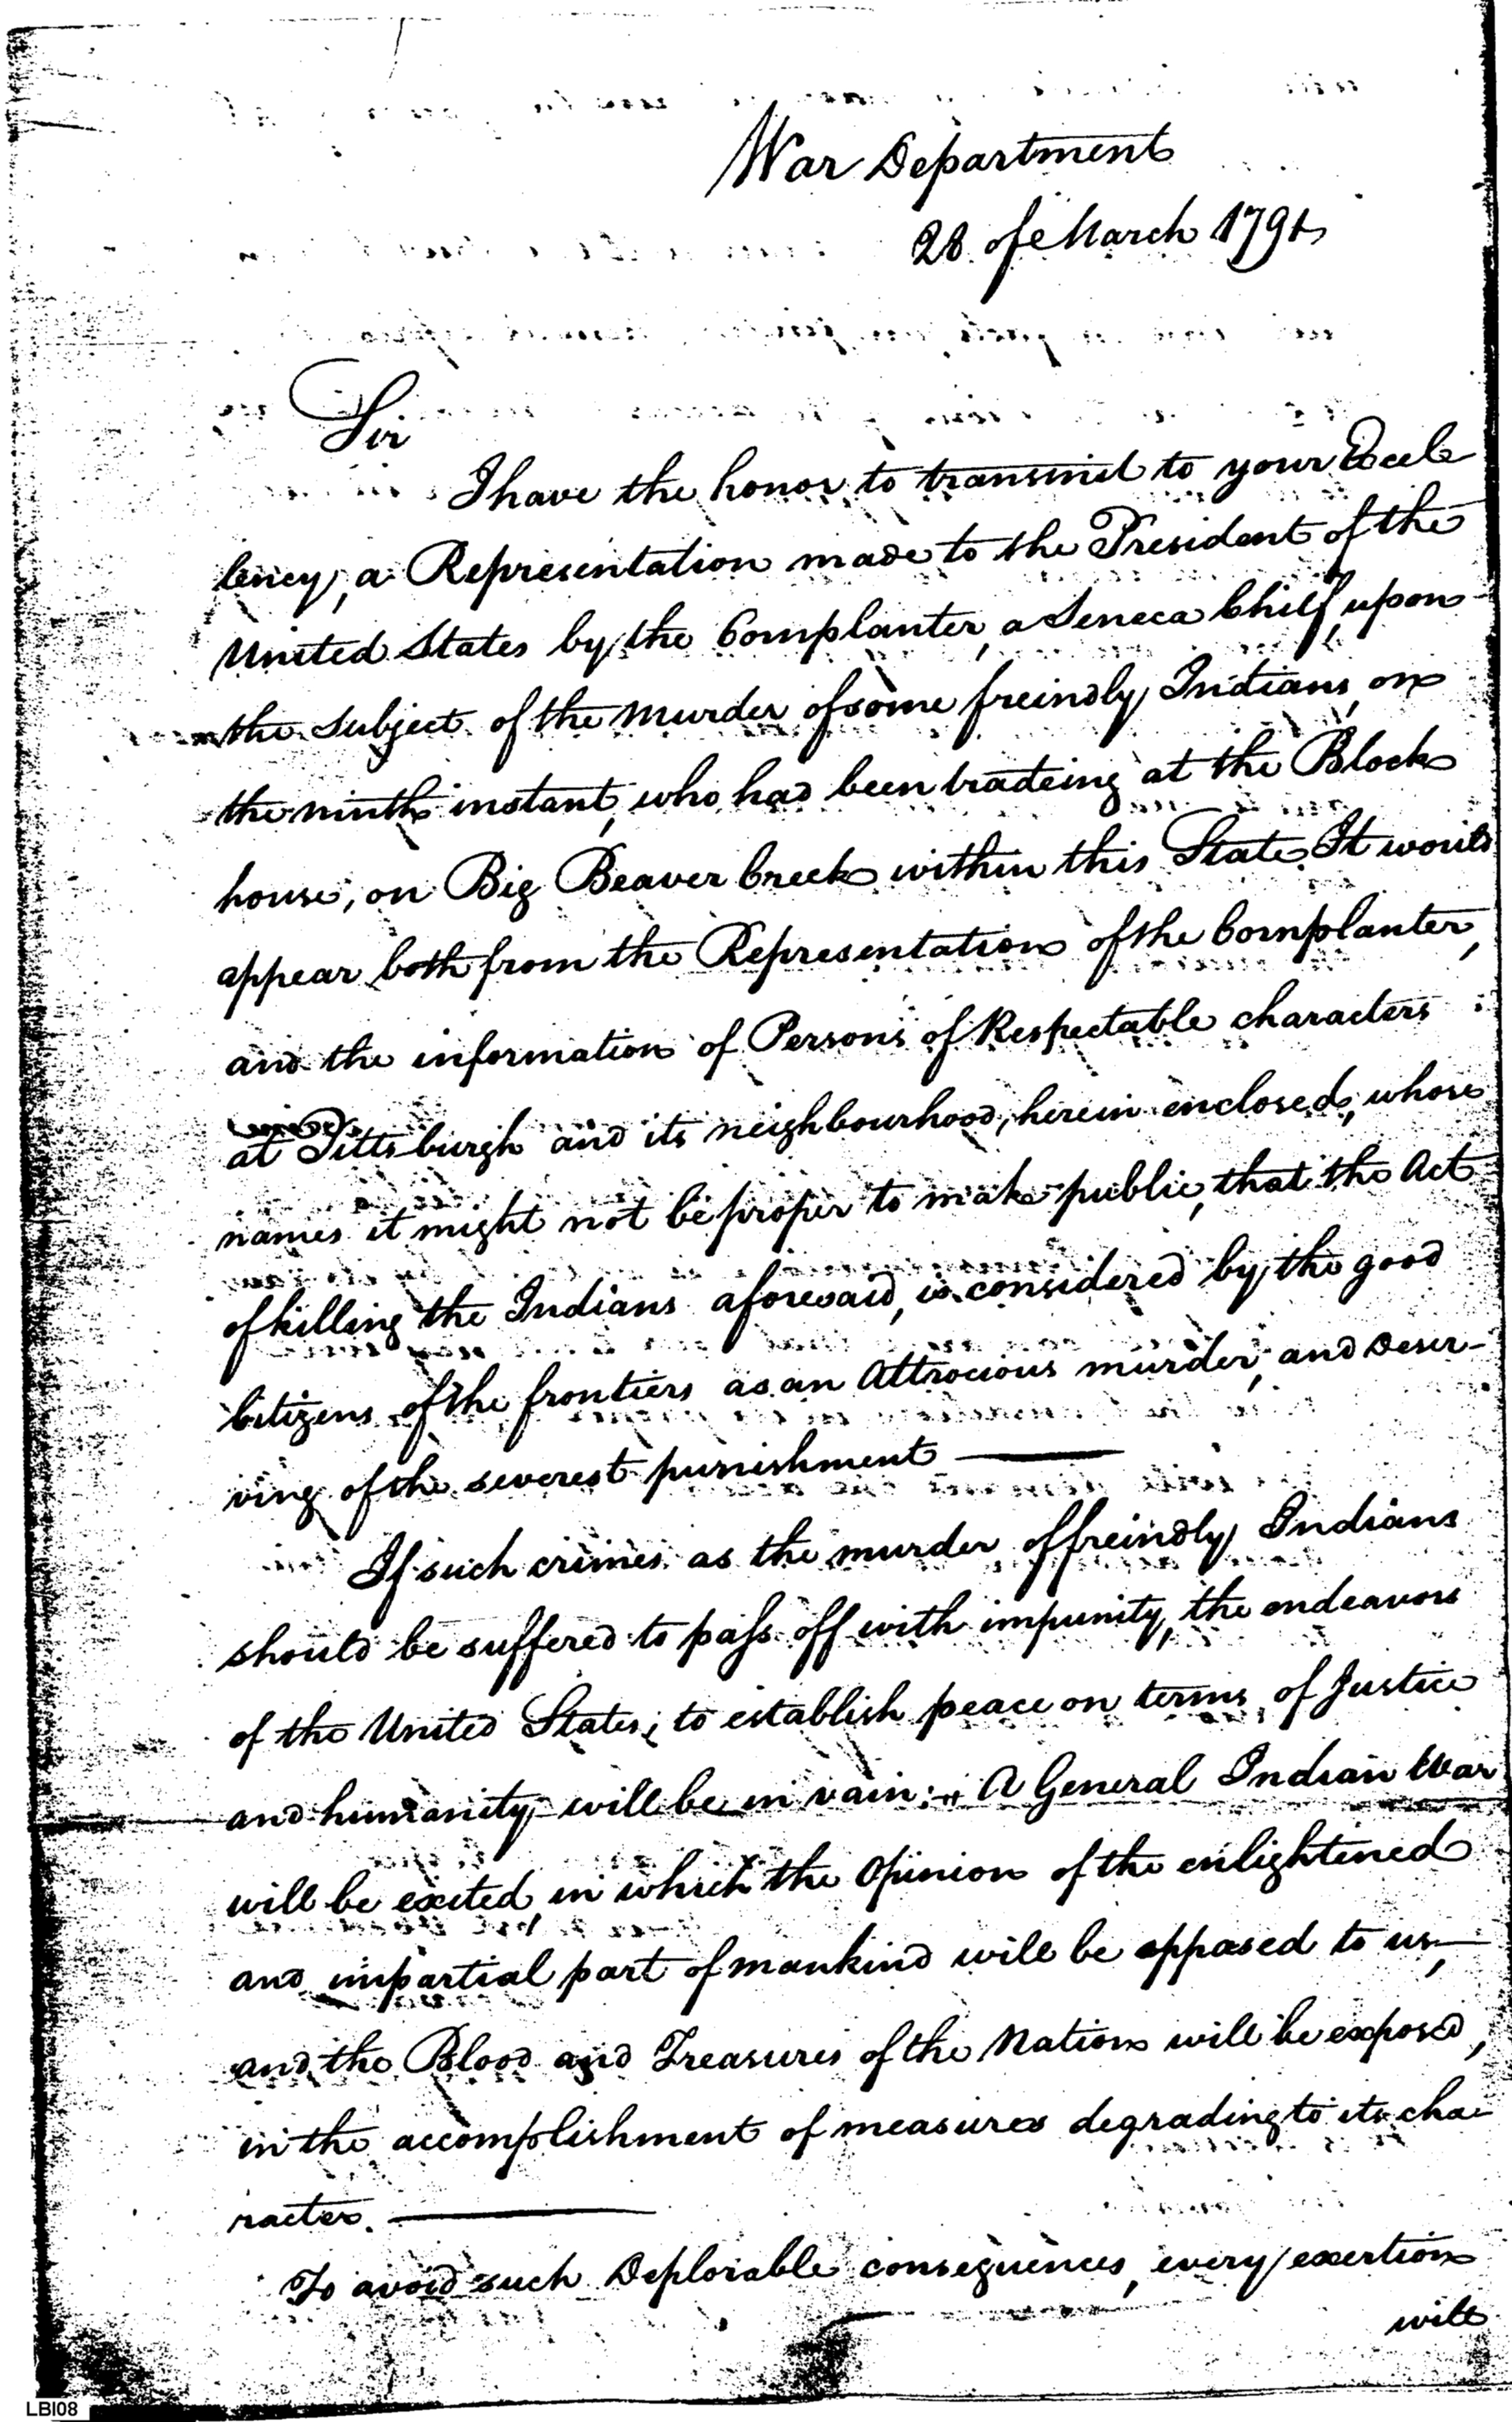 War Department
28 of March 1791
Sir
I have the honor to transmit to your Excel
lency, a Representation made to the President of the
United States by the Cornplanter, a Seneca Chief, upon
the Subject of the Murder of some freindly Indians, on
the ninth instant, who had been tradeing at the Block
house, on Big Beaver Creek within this State. It would
appear both from the Representation of the Cornplanter,
and the information of Persons of Respectable characters
at Pittsburgh and its neighbourhood, herein enclosed, whose
names it might not be proper to make public, that the Act
of killing the Indians aforesaid, is considered by the good
Citizens of the frontiers as an Attrocious murder, and Deser-
ving of the severest punishment
If such crimes as the murder of freindly Indians
should be suffered to pass off with impunity, the endeavors
of the United States, to establish peace on terms of Justice
and humanity will be in vain:,, A General Indian War
will be exited, in which the Opinion of the enlightened
and impartial part of mankind will be opposed to us,
and the Blood and Treasures of the Nation will be exposed,
in the accomplishment of measures degrading to its cha-
racter.
To avoid such Deplorable consequences, every exertion
will
LBI08